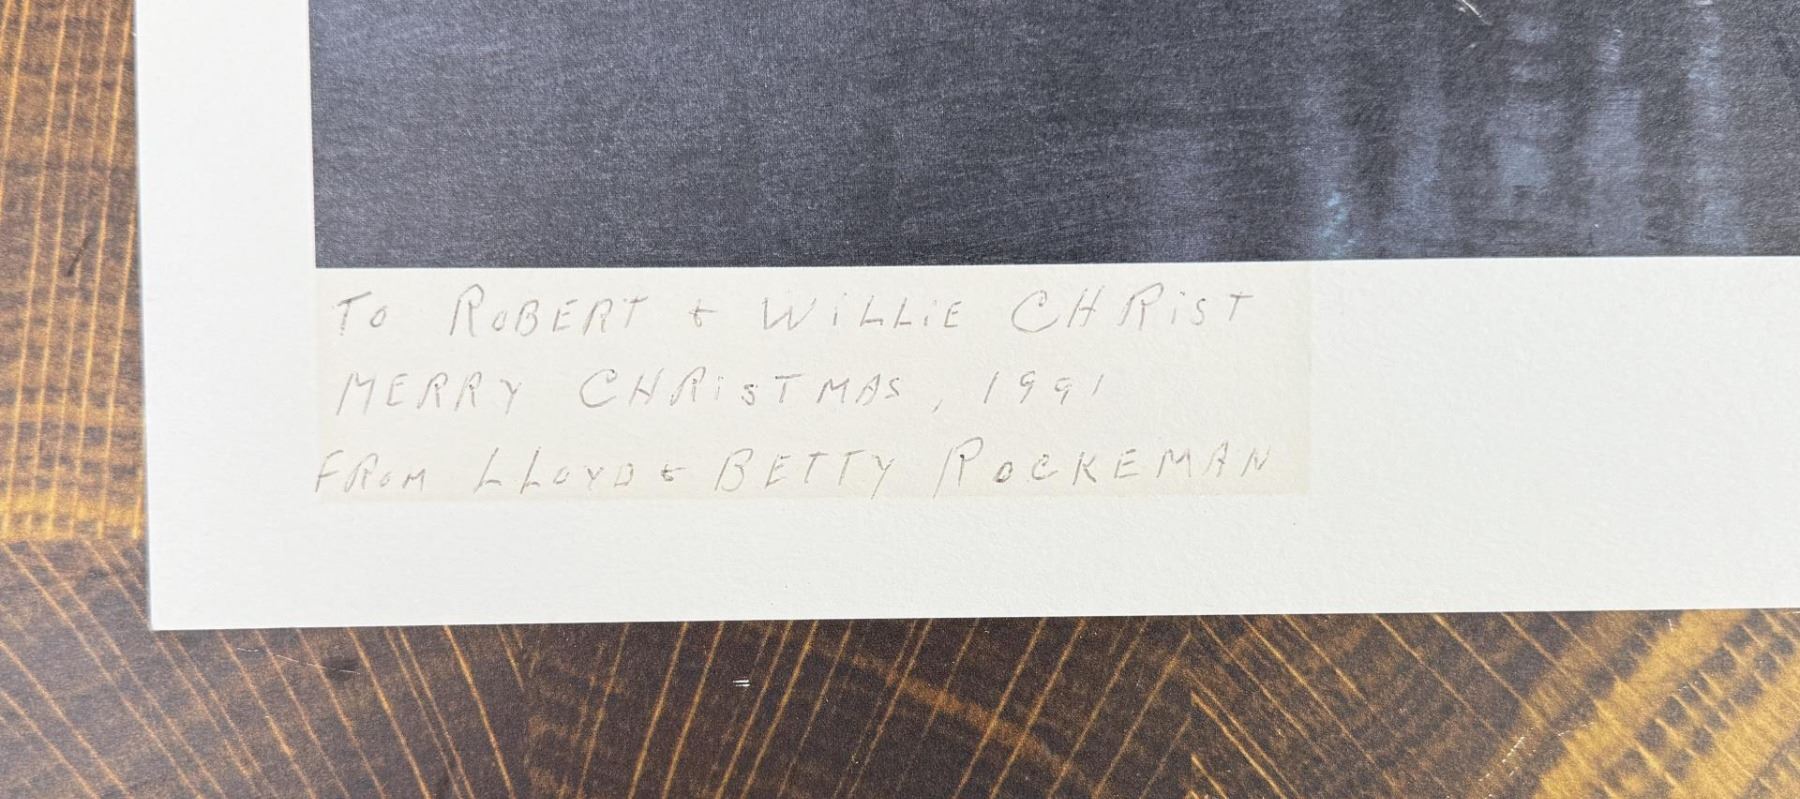 To ROBERT + WiLLiE CHRiST
MERRY CHRiSTMAS, 1991
FROM LLOYD + BETTY ROCKEMAN